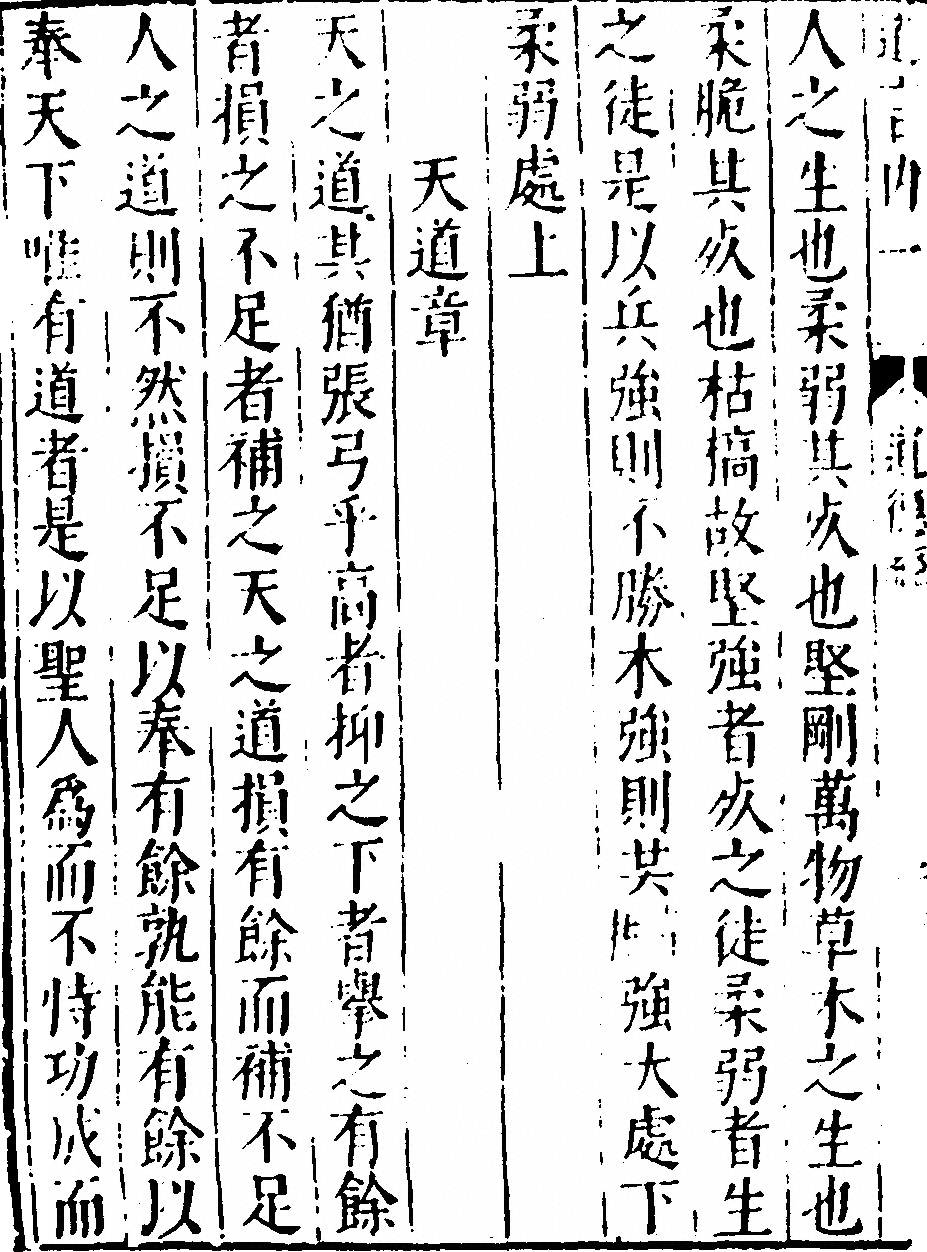 人之生也柔弱其死也堅剛萬物草木之生也
柔脆其死也枯槁故堅強者死之徒柔弱者生
之徒是以兵強則不勝木強則共強大處下
柔弱處上
天道章
天之道其猶張弓乎高者抑之下者舉之有餘
者損之不足者補之天之道損有餘而補不足
人之道則不然損不足以奉有餘孰能有餘以
奉天下唯有道者是以聖人爲而不恃功成而